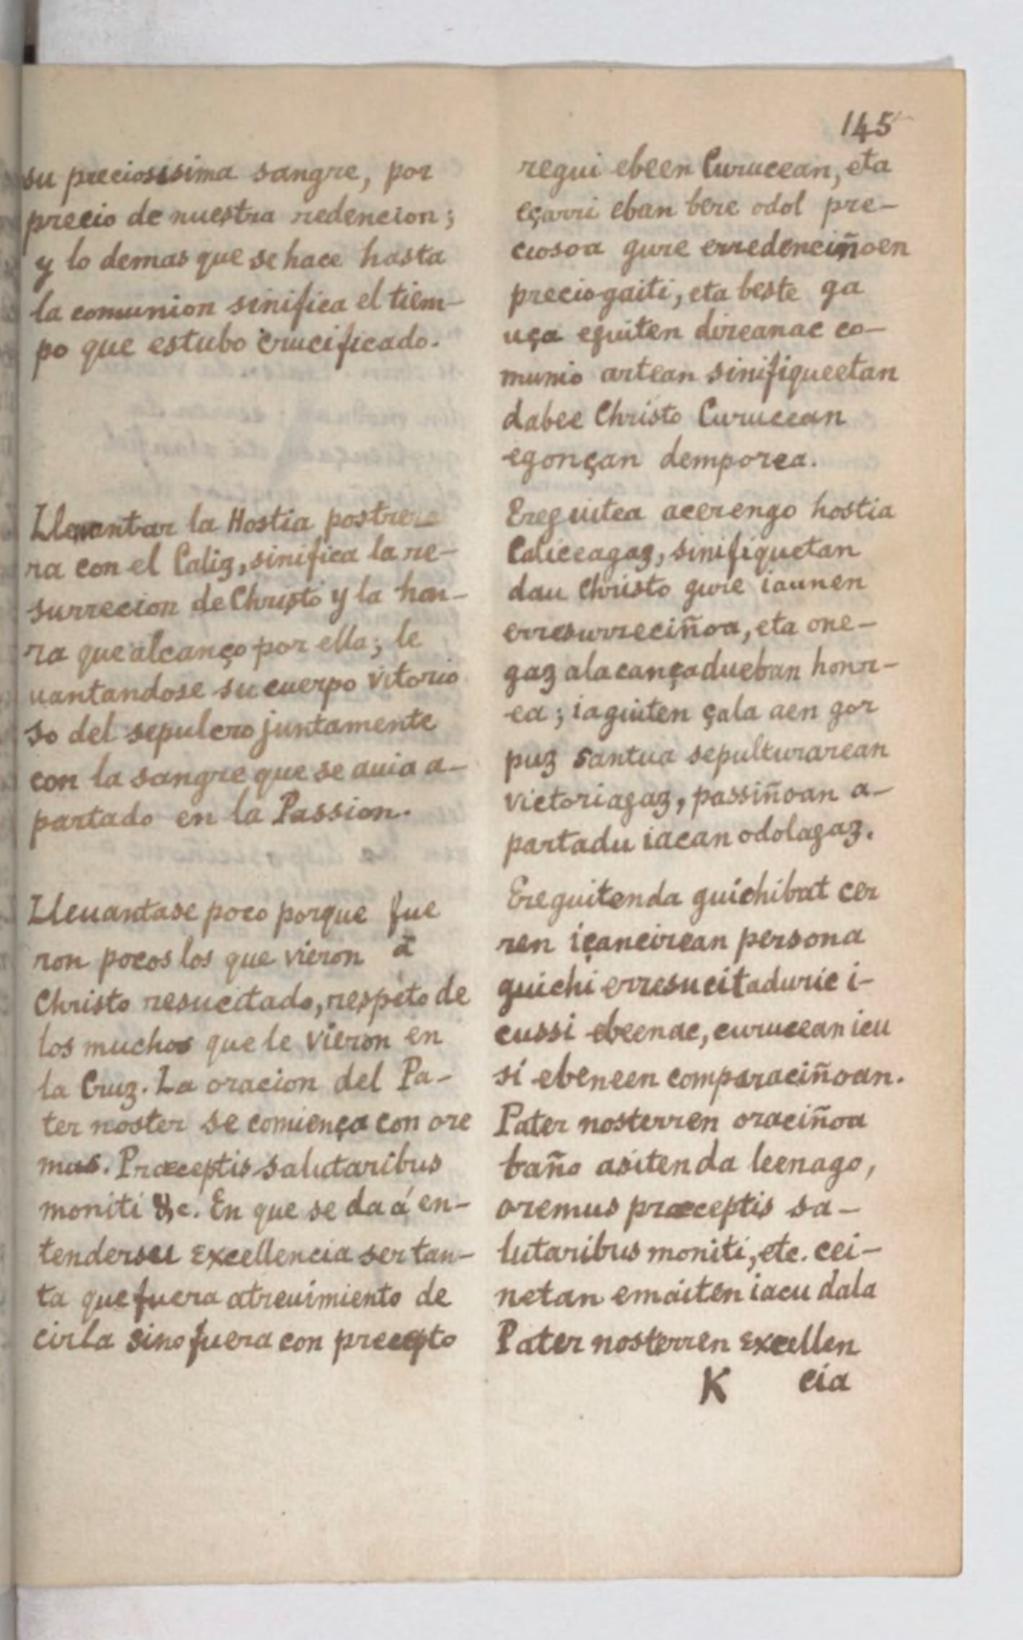 145
su preciosissima sangre, por
precio de nuestra redencion;
y lo demas que se hace hasta
la comunion sinifica el tiem-
po que estubo crucificado.
Llevantar la Hostia postrere
ra con el Caliz, sinifica la re-
surreccion de Christo y la hon-
ra que alcanço por ella; le
uantandose su cuerpo vitorio
so del sepulcro juntamente
con la sangre que se auia a-
partado en la Passion.
Lleuantase poco porque fue
ron pocos los que vieron á
Christo resucitado, respeto de
los muchos que le vieron en
la Cruz. La oracion del Pa-
ter noster se comiença con ore
mus. Præceptis salutaribus
moniti &c. En que se da á en-
tender su excellencia ser tan-
ta que fuera atreuimiento de
cirla sino fuera con precepto
regui ebeen Curucean, eta
eçarri eban bere odol pre-
ciosoa gure erredenciñoen
precio gaiti, eta beste ga
uça eguiten direanac co-
munio artean sinifiqueetan
dabee Christo Curucean
egonçan demporea.
Ereguitea acerengo hostia
Caliceagaz, sinifiquetan
dau Christo gure iaunen
erresurreciñoa, eta one-
gaz alacançadueban honr-
ea; iaguiten çala aen gor
puz santua sepulturarean
victoriagaz, passiñoan a-
partadu iacan odolagaz.
Ereguitenda guichibat cer
ren içancirean persona
guichi erresucitaduric i-
cussi ebeenac, curucean icu
si ebeneen comparaciñoan.
Pater nosterren oraciñoa
baño asitenda leenago,
oremus præceptis sa-
lutaribus moniti, etc. cei-
netan emaiten iacu dala
Pater nosterren excellen
K cia